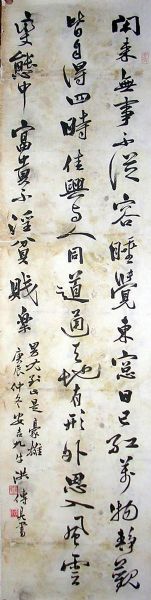 閑來無事不從容睡覺東窓日已紅萬物靜觀
皆自得四時佳興与人同道通天地有形外思入風雲
變態中富貴不淫貧賤樂
男兒到此是豪雄
庚辰仲冬安吉九牛洪傳書